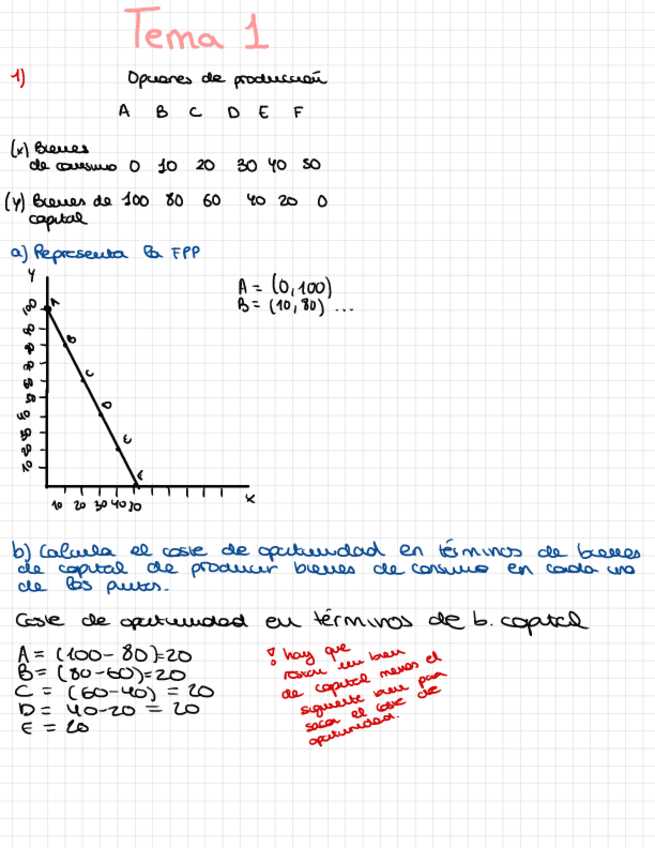 Tema 1
1) Opciones de producción
A B C D E F
(x) Bienes
de consumo 0 10 20 30 40 50
(y) Bienes de 100 80 60 40 20 0
capital
a) Representa la FPP
Y
A = (0,100)
B = (10,80) ...
100 A
90
80 B
70
60 C
50
40 D
30
20 E
10
F
10 20 30 40 50 X
b) Calcula el coste de oportunidad en términos de bienes
de capital de producir bienes de consumo en cada uno
de los puntos.
Coste de oportunidad en términos de b. capital
A = (100 - 80)=20
B = (80-60)=20
C = (60-40) = 20
D = 40-20 = 20
E = 20
! hay que
restar un bien
de capital menos el
siguiente bien para
sacar el coste de
oportunidad.